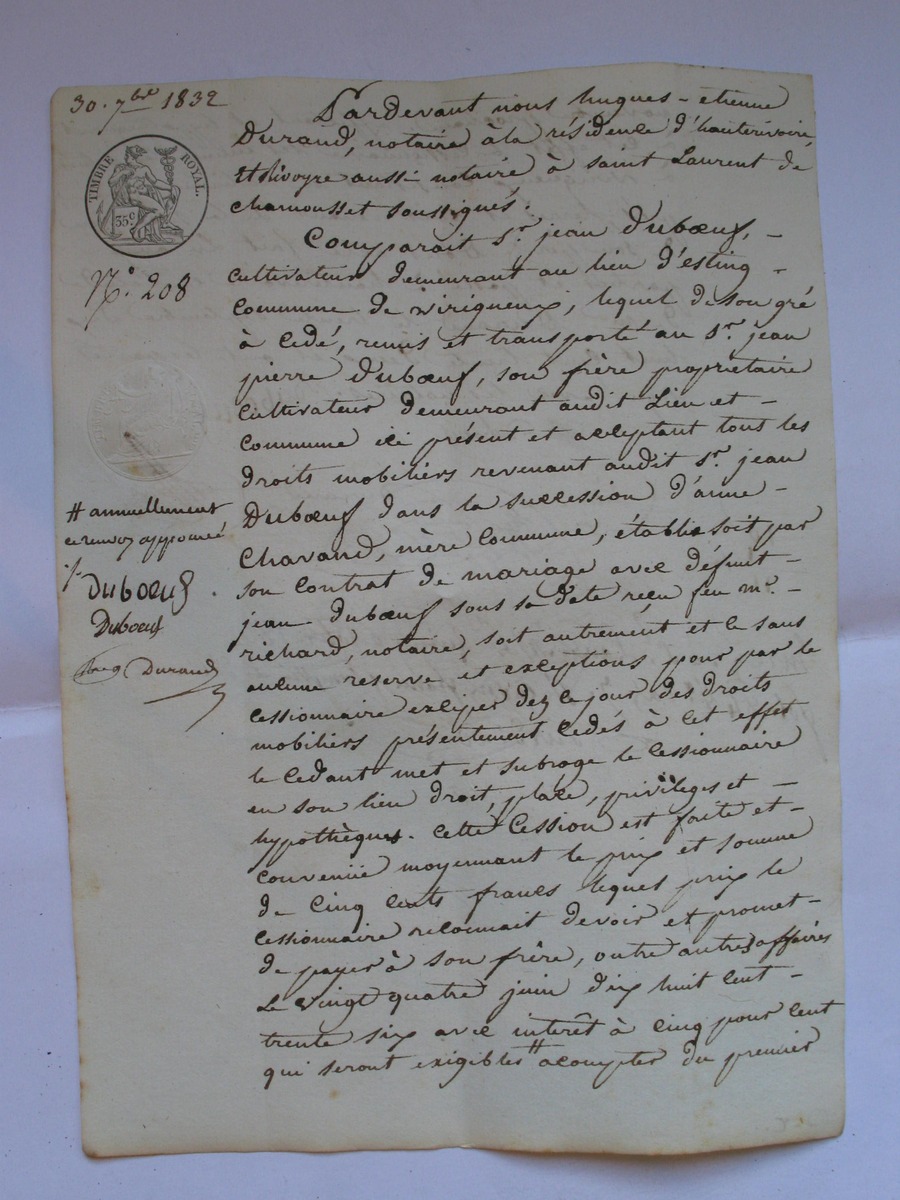 30. 7bre 1832
TIMBRE ROYAL.
35c
N° 208
# annuellement
ce renvoi approuvé
Duboeuf
Duboeuf
Durand
Pardevant nous hugues-etienne
Durand, notaire à la résidence d'hauterivoire,
et aussi notaire à saint Laurent de
chamousset soussignés.
Comparait Sr. jean Duboeuf, -
cultivateur demeurant au lieu d'esting -
commune de virigneux, lequel de son gré
à cedé, remis et transporté au Sr. jean
pierre Duboeuf, son frère propriétaire
cultivateur demeurant audit Lieu et -
commune ici présent et acceptant tous les
droits mobiliers revenant audit Sr. jean
Duboeuf dans la succession d'anne -
Chavand, mère commune, établis soit par
son contrat de mariage avec défunt -
jean duboeuf sous sa date reçu feu me. -
richard, notaire, soit autrement et le sans
aucune reserve et exceptions pour par le
cessionnaire exliper dez le jour des droits
mobiliers présentement cedés à cet effet
le cedant met et subroge le cessionnaire
en son lieu droit, place, privilèges et -
hypothèques. cette Cession est faite et -
convenüe moyennant le prix et somme
de cinq cents francs leques prix le
cessionnaire reconnait devoir et promet -
de payer à son frère, outre autres affaires
Le vingt quatre juin dix huit cent -
trente six avec interêt à cinq pour cent
qui seront exigibles # acompter du premier